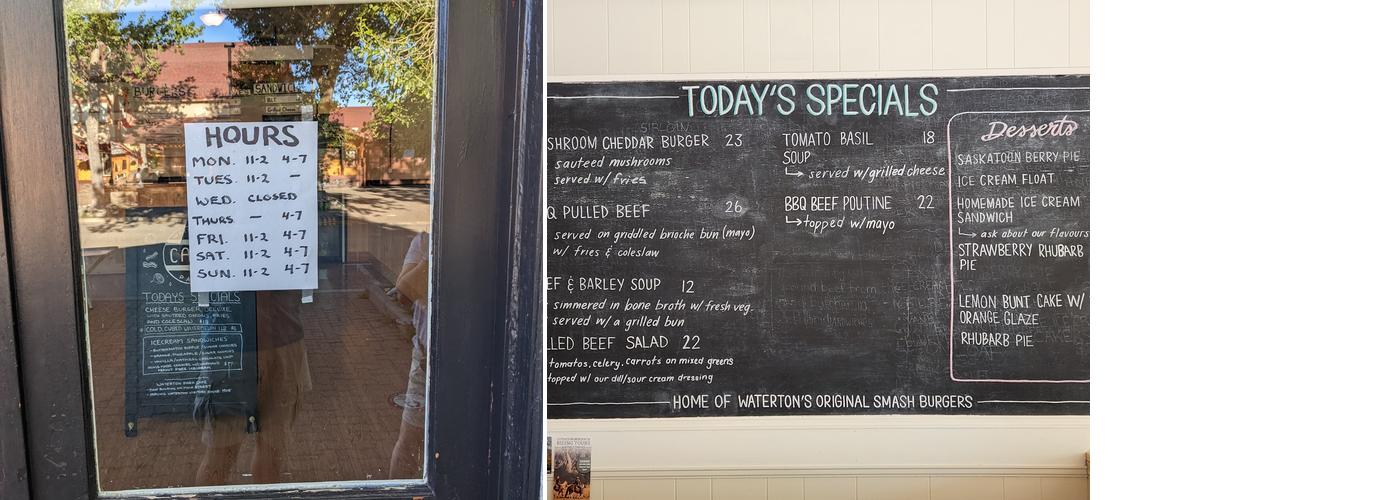 BURGERS
SANDWICH
HOURS
MON. 11-2 4-7
TUES. 11-2 —
WED. CLOSED
THURS — 4-7
FRI. 11-2 4-7
SAT. 11-2 4-7
SUN. 11-2 4-7
CA
TODAYS SPECIALS
CHEESE BURGER DELUXE
AND COLESLAW
ICECREAM SANDWICHES
WATERTON PARK CAFE
TODAY'S SPECIALS
SHROOM CHEDDAR BURGER 23
sauteed mushrooms
served w/ fries
Q PULLED BEEF 26
served on griddled brioche bun (mayo)
w/ fries & coleslaw
EF & BARLEY SOUP 12
simmered in bone broth w/ fresh veg.
served w/ a grilled bun
LLED BEEF SALAD 22
tomatos, celery, carrots on mixed greens
topped w/ our dill/sour cream dressing
TOMATO BASIL 18
SOUP
served w/grilled cheese
BBQ BEEF POUTINE 22
topped w/mayo
Desserts
SASKATOON BERRY PIE
ICE CREAM FLOAT
HOMEMADE ICE CREAM
SANDWICH
ask about our flavours
STRAWBERRY RHUBARB
PIE
LEMON BUNT CAKE W/
ORANGE GLAZE
RHUBARB PIE
HOME OF WATERTON'S ORIGINAL SMASH BURGERS